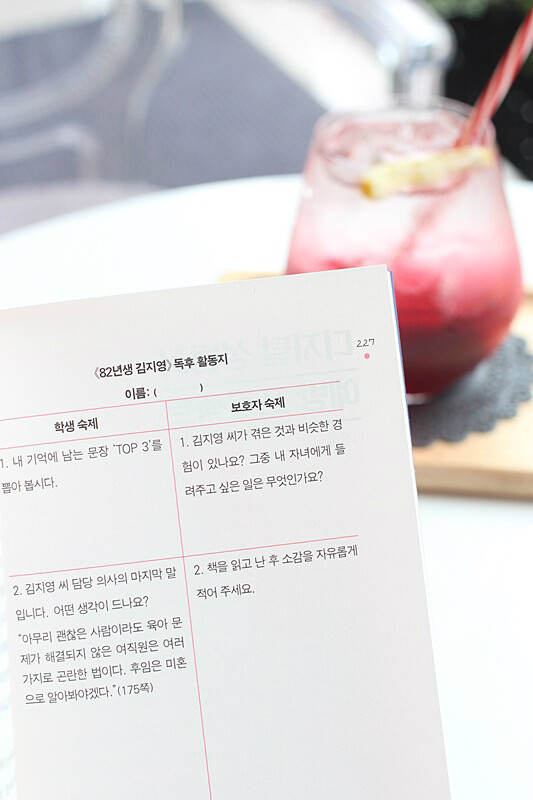 227
《82년생 김지영》 독후 활동지
이름: ( )
학생 숙제
1. 내 기억에 남는 문장 'TOP 3'를
뽑아 봅시다.
보호자 숙제
1. 김지영 씨가 겪은 것과 비슷한 경
험이 있나요? 그중 내 자녀에게 들
려주고 싶은 일은 무엇인가요?
2. 김지영 씨 담당 의사의 마지막 말
입니다. 어떤 생각이 드나요?
"아무리 괜찮은 사람이라도 육아 문
제가 해결되지 않은 여직원은 여러
가지로 곤란한 법이다. 후임은 미혼
으로 알아봐야겠다."(175쪽)
2. 책을 읽고 난 후 소감을 자유롭게
적어 주세요.